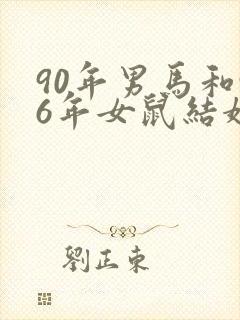 90年男馬和
6年女鼠結
劉正東